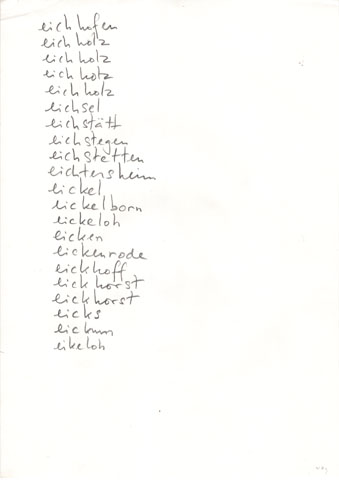 eichhofen
eichholz
eichholz
eichholz
eichholz
eichsel
eichstätt
eichstegen
eichstetten
eichtersheim
eickel
eickelborn
eickeloh
eicken
eickenrode
eickhoff
eickhorst
eickhorst
eicks
eickum
eikeloh